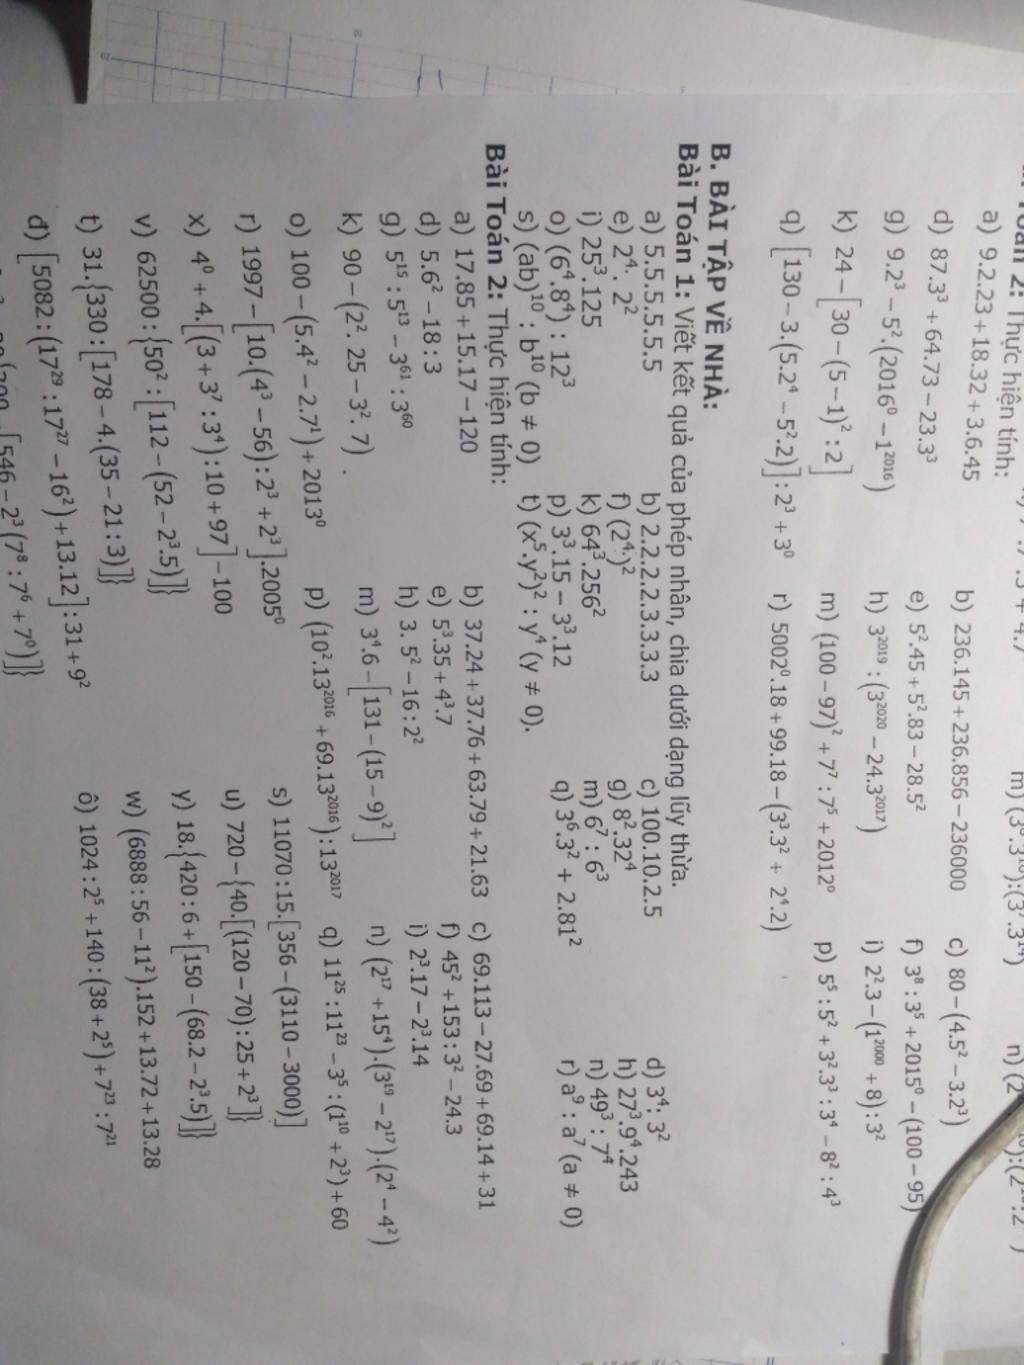 2: Thực hiện tính:
a) 9.2.23+18.32+3.6.45 b) 236.145+236.856−236000 c) 80−(4.5²−3.2³)
d) 87.3³+64.73−23.3³ e) 5².45+5².83−28.5² f) 3⁸:3⁵+2015⁰−(100−95)
g) 9.2³−5².(2016⁰−1²⁰¹⁶) h) 3²⁰¹⁹:(3²⁰²⁰−24.3²⁰¹⁷) i) 2².3−(1²⁰⁰⁰+8):3²
k) 24−[30−(5−1)²:2] m) (100−97)²+7⁷:7⁵+2012⁰ p) 5⁵:5²+3².3³:3⁴−8²:4³
q) [130−3.(5.2⁴−5².2)]:2³+3⁰ r) 5002⁰.18+99.18−(3³.3²+ 2⁴.2)
B. BÀI TẬP VỀ NHÀ:
Bài Toán 1: Viết kết quả của phép nhân, chia dưới dạng lũy thừa.
a) 5.5.5.5.5.5 b) 2.2.2.2.3.3.3.3 c) 100.10.2.5 d) 3⁴: 3²
e) 2⁴· . 2² f) (2⁴·)² g) 8².32⁴ h) 27³.9⁴.243
i) 25³.125 k) 64³.256² m) 6⁷ : 6³ n) 49³ : 7⁴
o) (6⁴.8⁴) : 12³ p) 3³.15 – 3³.12 q) 3⁶.3² + 2.81² r) a⁹ : a⁷ (a ≠ 0)
s) (ab)¹⁰ : b¹⁰ (b ≠ 0) t) (x⁵.y²)² : y⁴ (y ≠ 0).
Bài Toán 2: Thực hiện tính:
a) 17.85+15.17−120 b) 37.24+37.76+63.79+21.63 c) 69.113−27.69+69.14+31
d) 5.6²−18:3 e) 5³.35+4³.7 f) 45²+153:3²−24.3
g) 5¹⁵:5¹³−3⁶¹:3⁶⁰ h) 3. 5²−16:2² i) 2³.17−2³.14
k) 90−(2². 25−3². 7) . m) 3⁴.6−[131−(15−9)²] n) (2¹⁷+15⁴).(3¹⁹−2¹⁷).(2⁴−4²)
o) 100−(5.4²−2.7¹)+2013⁰ p) (10².13²⁰¹⁶+69.13²⁰¹⁶):13²⁰¹⁷ q) 11²⁵:11²³−3⁵:(1¹⁰+2³)+60
r) 1997−[10.(4³−56):2³+2³].2005⁰ s) 11070:15.[356−(3110−3000)]
x) 4⁰+4.[(3+3⁷:3⁴):10+97]−100 u) 720−{40.[(120−70):25+2³]}
v) 62500:{50²:[112−(52−2³.5)]} y) 18.{420:6+[150−(68.2−2³.5)]}
t) 31.{330:[178−4.(35−21:3)]} w) (6888:56−11²).152+13.72+13.28
đ) [5082:(17²⁹:17²⁷−16²)+13.12]:31+9² ô) 1024:2⁵+140:(38+2⁵)+7²³:7²¹
[546−2³(7⁸:7⁶+7⁰)]}